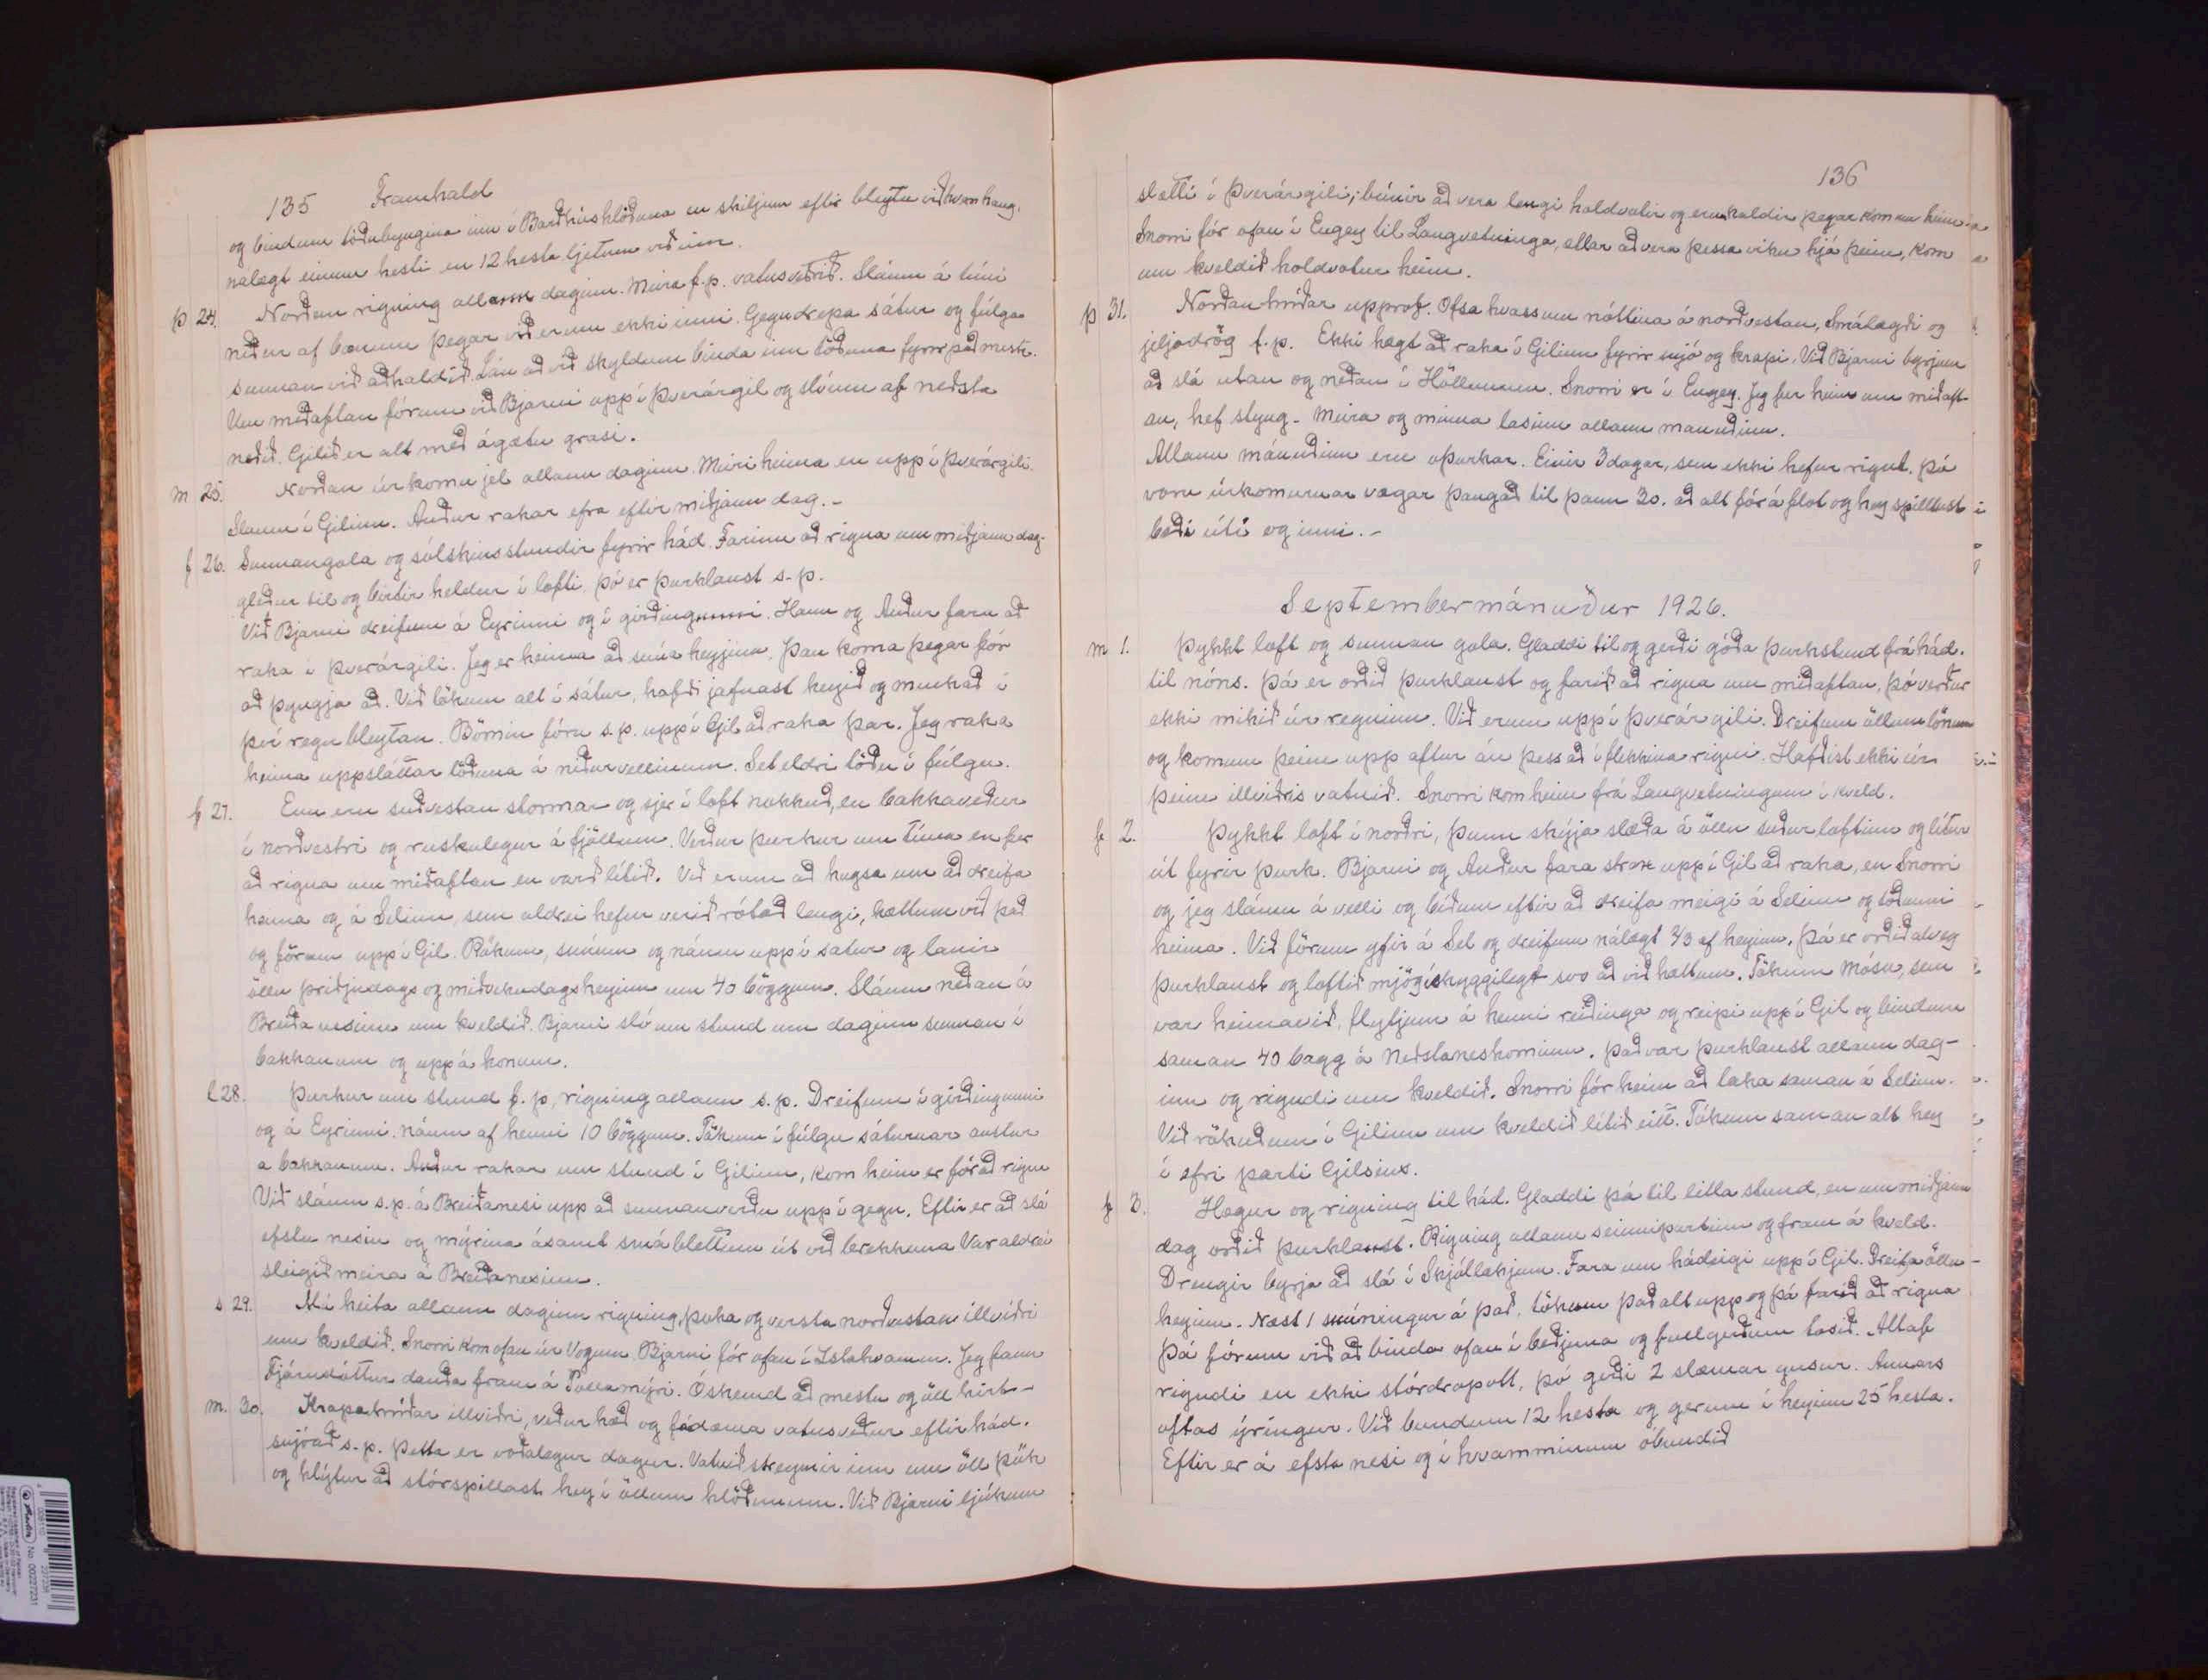 135 Framhald
og bindum töðubyngina inn í Barðhúshlöðuna en skiljum eftir bleytu við hvern haug,
nálægt einum hesti en 12 hesta ljetum við inn.
þ 24. Norðan rigning allann daginn. Meira f.p. vatnsveðrið. Sláum á túni
neðan af bænum þegar við erum ekki inni. Gegndrepa sátur og fúlga
sunnan við aðhaldið. Lán að við skyldum binda inn töðuna fyrir það mesta.
Um miðaftan fórum við Bjarni upp í Þverárgil og sláum af neðsta
neðið. Gilið er alt með ágætu grasi.
m 25. Norðan úrkomu jel allann daginn. Meiri heima en upp í Þverárgili.
Sláum í Gilinu. Auður rakar efra eftir miðjann dag.-
f 26. Sunnangola og sólskinsstundir fyrir hád. Farinn að rigna um miðjann dag.
gleður til og birtir heldur í lofti, þó er þurklaust s-p.
Við Bjarni dreifum á Eyrinni og í girðingunni. Hann og Auður fara að
raka í Þverárgili. Jeg er heima að snúa heyjinu. Þau koma þegar fór
að þyngja að. Við tökum alt í sátur, hafði jafnast heyið og munkað í
því regn bleytan. Börnin fóru s.p. upp í Gil að raka þar. Jeg raka
heima uppsláttar töðuna á niðurvellinum. Set eldri töðu í fúlgu.
f 27. Enn eru suðvestan stormar og sjer í loft nokkuð, en bakkaveður
í norðvestri og ruskulegur á fjöllum. Verður þurkur um tíma en fer
að rigna um miðaftan en varð lítið. Við erum að hugsa um að dreifa
heima og á Selinu, sem aldrei hefur verið rótað lengi, hættum við það
og förum upp í Gil. Rökum, snúum og náum upp í sátur og lanir
öllu þriðjudags og miðvikudagsheyinu um 40 böggum. Sláum neðan á
Breiðanesinu um kveldið. Bjarni sló um stund um daginn sunnan í
bakkanum og upp á honum.
l 28. Þurkur um stund f.p. rigning allann s.p. Dreifum í girðingunni
og á Eyrinni. náum af henni 10 böggum. Tökum í fúlgu sáturnar austur
á bakkanum. Auður rakar um stund í Gilinu, kom heim er fór að rigna
Við sláum s.p. á Breiðanesi upp að sunnanverðu upp í gegn. Eftir er að slá
efstu nesin og mýrina ásamt smá blettum út við brekkuna Var aldrei
sleigið meira á Breiðanesinu.
s 29. Má heita allann daginn rigning, þoka og versta norðvestan illviðri
um kveldið. Snorri kom ofan úr Vogum. Bjarni fór ofan í Istahvamm. Jeg fann
Fjárudóttur dauða fram á Pollamýri. Óskemd að mestu og öll hirt-
m. 30. Krapahríðar illviðri, veðurhæð og fádæma vatnsveður eftir hád.
snjóað s.p. Þetta er voðalegur dagur. Vatnið streymir inn um öll þök
og hlýtur að stórspillast hey í öllum hlöðunum. Við Bjarni ljúkum
136
sletti í Þverárgili, búnir að vera lengi holdvotir og erum kaldir þegar komum heim.
Snorri fór ofan í Engey til Langvetninga, ætlar að vera þessa viku hjá þeim, kom
um kveldið holdvotur heim.
þ 31. Norðan hríðar upprof. Ofsa hvass um nóttina á norðvestan, Smálægði og
jeljadrög f.p. Ekki hægt að raka í Gilinu fyrir snjó og krapi. Við Bjarni byrjum
að slá utan og neðan í Höllunum. Snorri er í Engey. Jeg fer heim um miðaft-
an, hef styng- Meira og minna lasinn allann mánuðinn.
Allann mánuðinn eru óþurkar. Einir 3 dagar, sem ekki hefur rignt, þó
voru úrkomurnar vægar þangað til þann 30. að alt fór á flot og hey spilltust
bæði úti og inni.-
Septembermánuður 1926.
m 1. Þykkt loft og sunnan gola. Gladdi til og gerði góða þurkstund frá hád.
til nóns. Þá er orðið þurklaust og farið að rigna um miðaftan, þó verður
ekki mikið úr regninu. Við erum upp í Þverárgili. Dreifum öllum lönum
og komum þeim upp aftur án þess að í flekkina rigni. Hafðist ekki úr
þeim illviðris vatnið. Snorri kom heim frá Langvetningum í kveld.
f 2. Þykkt loft í norðri, þunn skýja slæða á öllu suður loftinu og lítur
út fyrir þurk. Bjarni og Auður fara strax upp í Gil að raka, en Snorri
og jeg sláum á velli og bíðum eftir að dreifa meigi á Selinu og töðunni
heima. Við förum yfir á Sel og dreifum nálægt 2/3 af heyinu. Þá er orðið alveg
þurklaust og loftið mjög ískyggilegt svo að við hættum. Tökum Mósu, sem
var heimavið, flytjum á henni reiðinga og reipi upp í Gil og bindum
saman 40 bagg á Neðstaneshominu. Það var þurklaust allann dag-
inn og rigndi um kveldið. Snorri fór heim að taka saman á Selinu.
Við rökuðum í Gilinu um kveldið lítið eitt. Tókum saman alt hey
í efri parti Gilsins.
f 3. Hægur og rigning til hád. Gladdi þá til litla stund, en um miðjann
dag orðið þurklaust. Rigning allann seinnipartinn og fram á kveld.
Drengir byrja að slá í Skjóllækjum. Fara um hádeigi upp í Gil. Dreifa öllu
heyinu. Næst 1 snúningur á það, tökum það alt upp og þá farið að rigna
Þá förum við að binda ofan í beðjuna og fullgerðum lasið. Altaf
rigndi en ekki stórdropótt, þó gerði 2 slæmar gusur. Annars
oftas ýringur. Við bundum 12 hesta og gerum í heyinu 25 hesta.
Eftir er á efsta nesi og í hvamminum óbundið